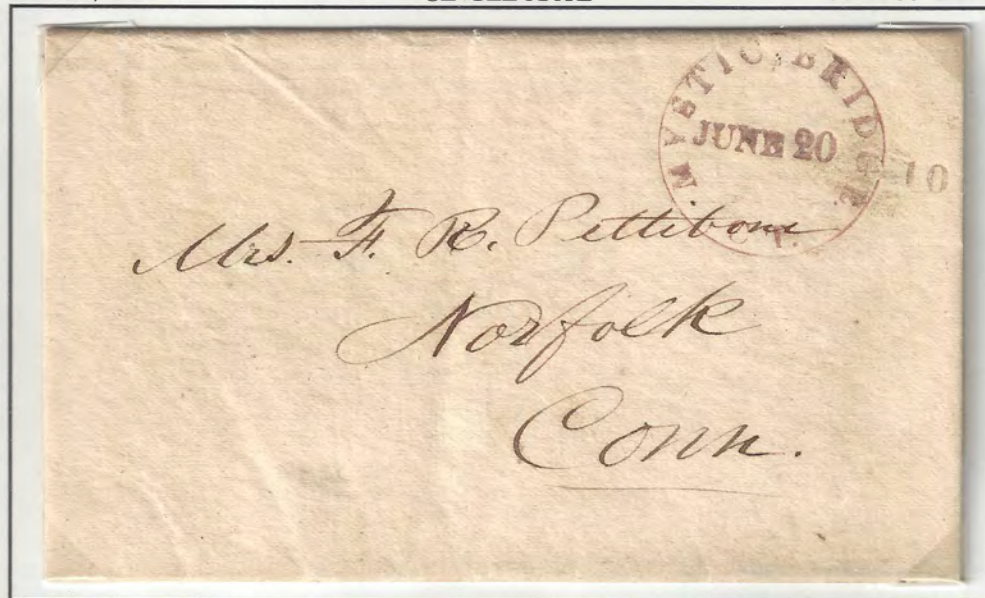 MYSTIC BRIDGE
JUNE 20
CT.
10
Mrs. F. R. Pettibone
Norfolk
Conn.